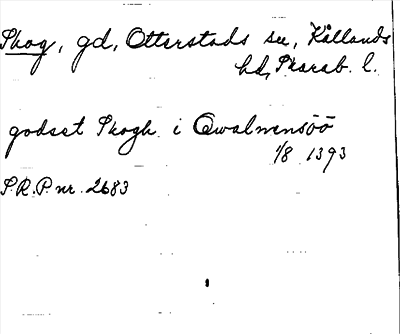 Skog, gd, Otterstads sn, Kållands
hd, Skarab. l.
godset Skogh i Qwalmensöö
1/8 1393
S.R.P. nr. 2683